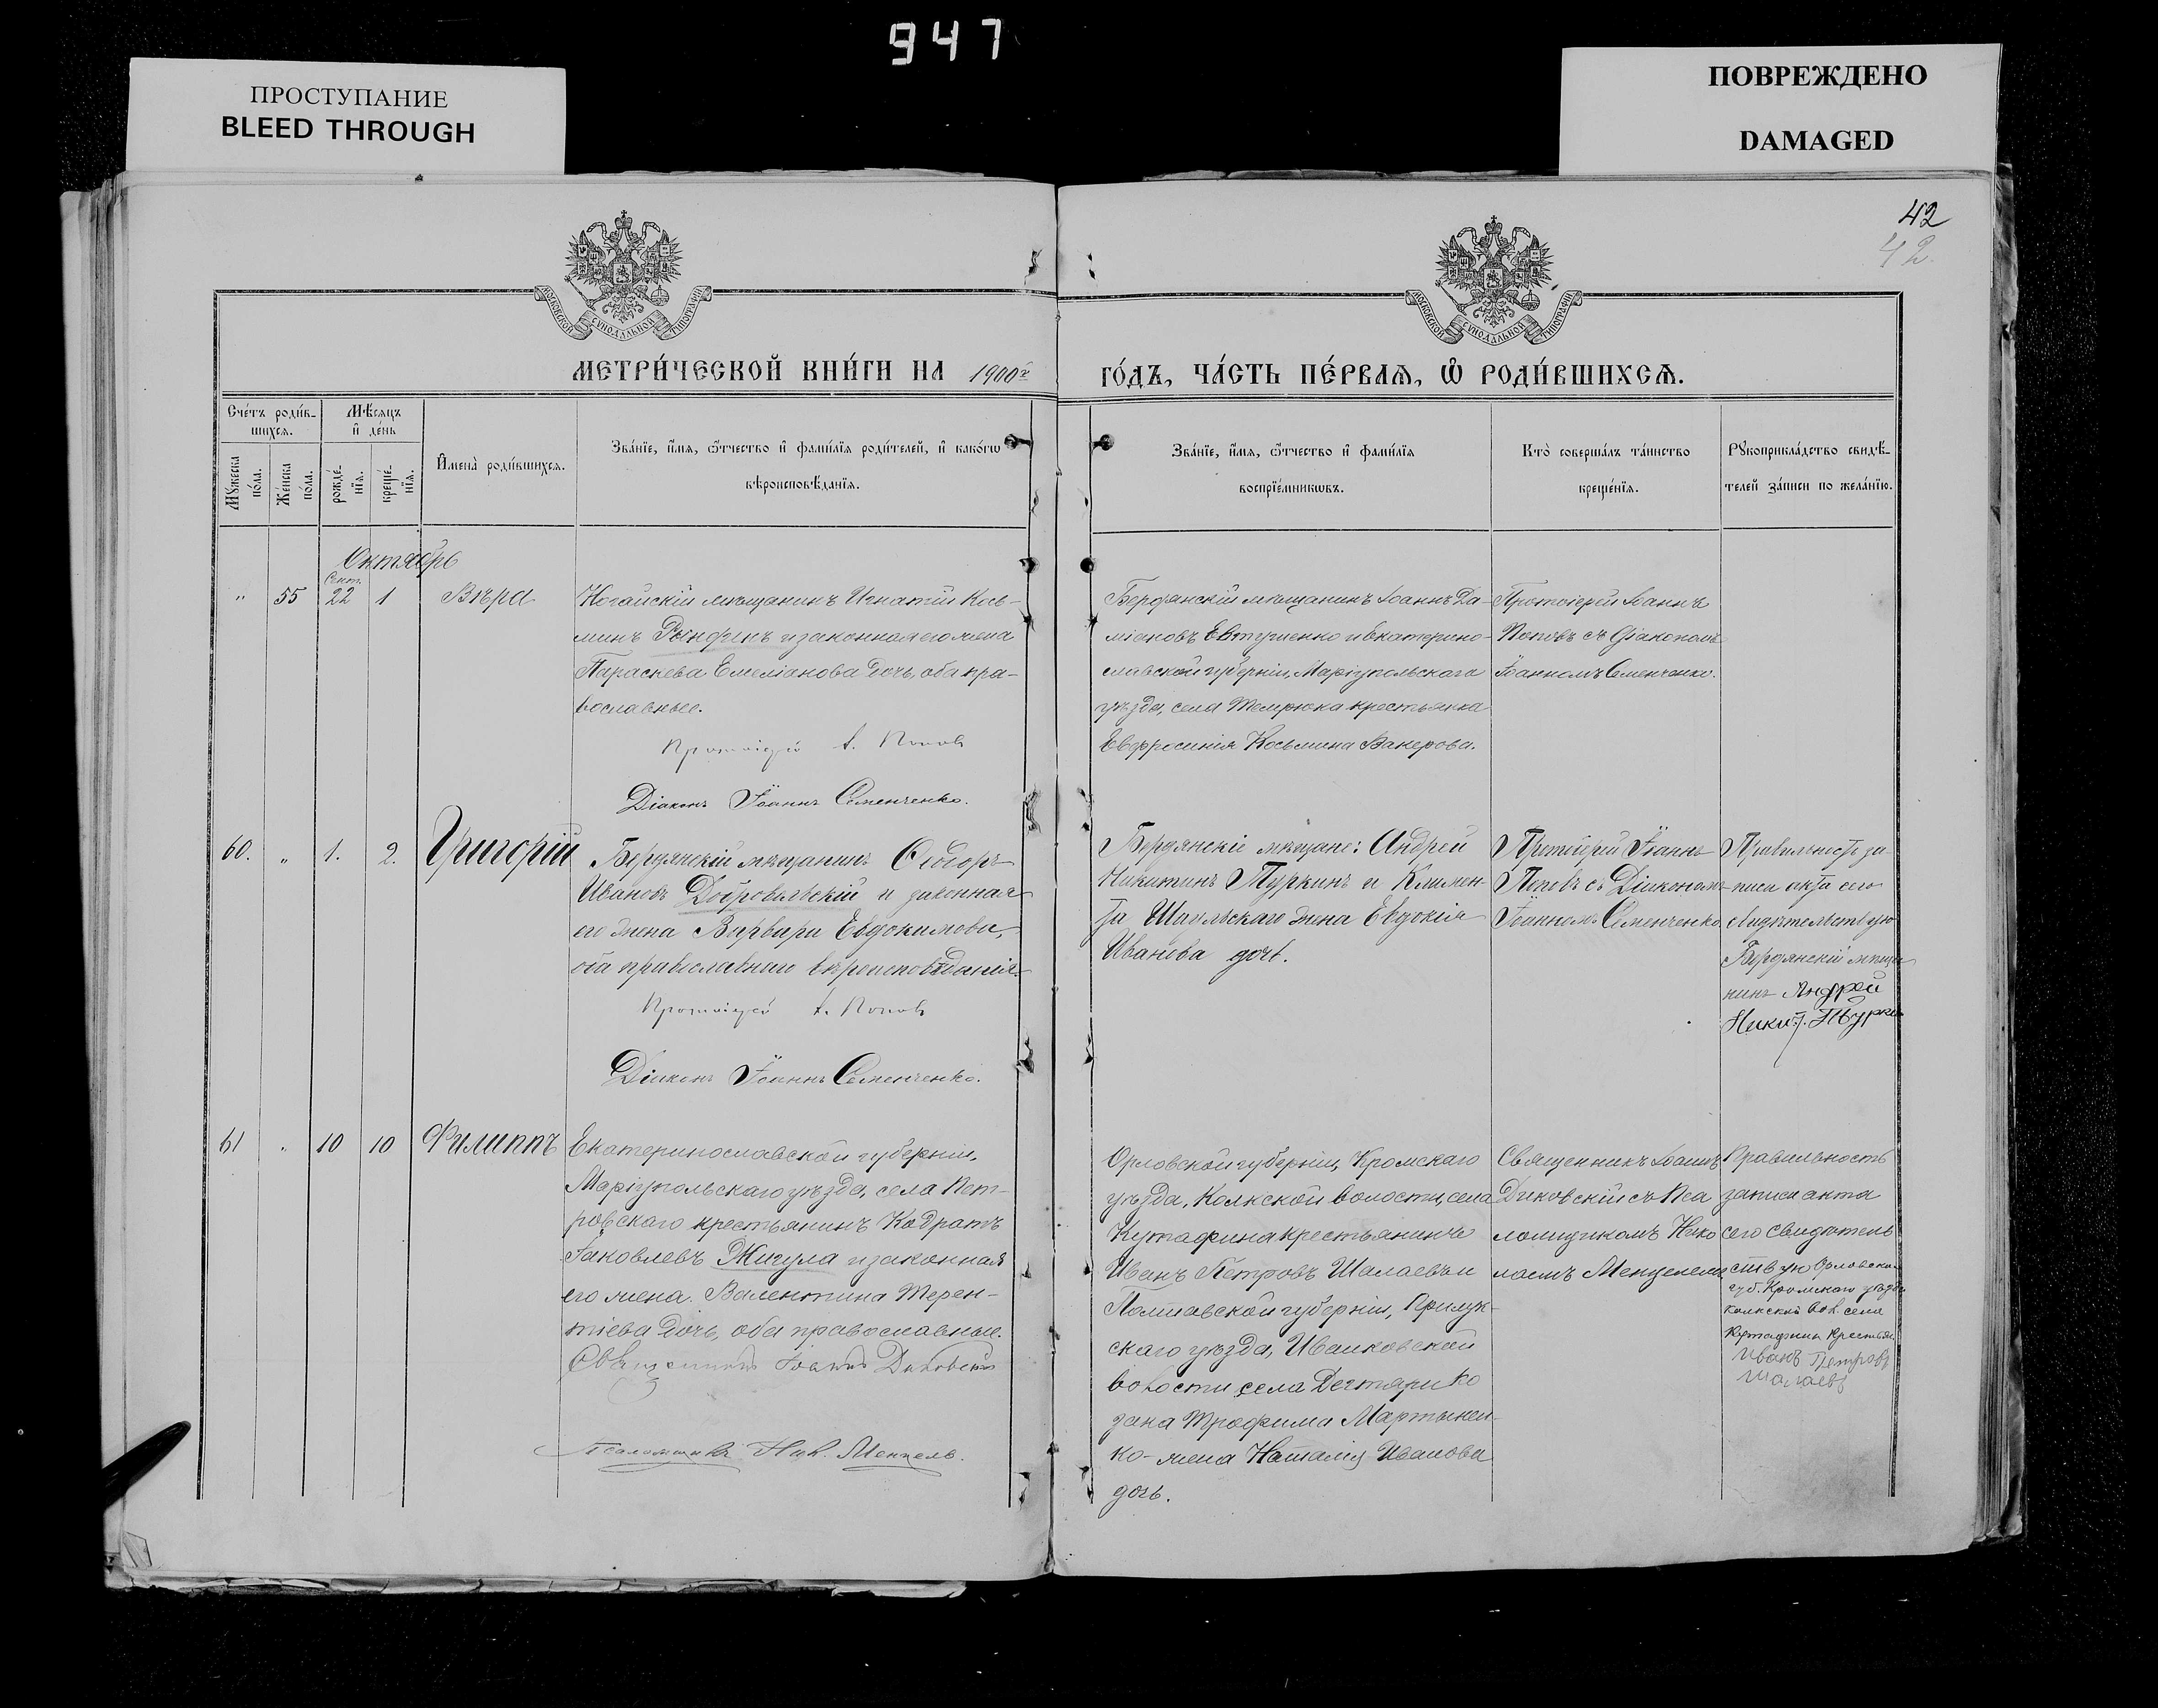 947
ПРОСТУПАНИЕ
BLEED THROUGH
ПОВРЕЖДЕНО
DAMAGED
42
42.
МОСКОВСКОЙ СУНОДАЛЬНОЙ ТИПОГРАФІИ
МОСКОВСКОЙ СУНОДАЛЬНОЙ ТИПОГРАФІИ
МЕТРИ́ЧЕСКОЙ КНИ́ГИ НА 1900й
ГО́ДЪ, ЧА́СТЬ ПЕ́РВАѦ, Ѡ҆ РОДИ́ВШИХСѦ.
Сче́тъ роди́в-
шихсѧ.
Мѣ́сѧцъ
и҆ де́нь
Мꙋ́жеска
по́ла.
Же́нска
по́ла.
рожде́-
нїѧ.
креще́-
нїѧ.
И҆мена̀ роди́вшихсѧ.
Зва́нїе, и҆́мѧ, ѻ҆́тчество и҆ фами́лїѧ роди́телей, и҆ како́гѡ
вѣроисповѣ́данїѧ.
Зва́нїе, и҆́мѧ, ѻ҆́тчество и҆ фами́лїѧ
воспрїе́мникѡвъ.
Кто̀ соверша́лъ та́инство
креще́нїѧ.
Рꙋкоприкла́дство свидѣ́-
телей за́писи по жела́нїю.
Октябрь
Сент.
" 55 22 1 Вѣра
Ногайскій мѣщанинъ Игнатій Кось-
минъ и законная его жена
Параскева Емеліанова дочь, оба пра-
вославные.
Протоіерей І. Поповъ
Діаконъ Іоаннъ Семенченко.
Бердянскій мѣщанинъ Іоаннъ Да-
міановъ Евтушенко и Екатерино-
славской губерніи, Маріупольскаго
уѣзда, села Темрюка крестьянка
Евфросинія Косьмина Вакерова.
Протоіерей Іоаннъ
Поповъ съ Діакономъ
Іоанномъ Семенченко.
60. " 1. 2. Григорій
Бердянскій мѣщанинъ Ѳеодоръ
Ивановъ Добровольскій и законная
его жена Варвара Евдокимова,
оба православнаго вѣроисповѣданія.
Протоіерей І. Поповъ
Діаконъ Іоаннъ Семенченко.
Бердянскіе мѣщане: Андрей
Никитинъ Туркинъ и Климен-
та Шаольскаго жена Евдокія
Иванова дочь.
Протоіерей Іоаннъ
Поповъ съ Діакономъ
Іоанномъ Семенченко
Правильность за-
писи акта сего
свидѣтельствую
Бердянскій мѣща
нинъ Андрей
Никит. Турки
61 " 10 10 Филиппъ
Екатеринославской губерніи,
Маріупольскаго уѣзда, села Пет-
ровскаго крестьянинъ Кодратъ
Іаковлевъ Жигула и законная
его жена Валентина Терен-
тіева дочь, оба православные.
Священникъ Іоаннъ Диковскій
Псаломщикъ Ник. Менцель.
Орловской губерніи, Кромскаго
уѣзда, Колкской волости, села
Кутафина крестьянинъ
Иванъ Петровъ Шалаевъ и
Полтавской губерніи, Прилук-
скаго уѣзда, Иваиковской
волости села Дегтяри Ко
зака Трофима Мартынен-
ко - жена Наталія Иванова
дочь.
Священникъ Іоаннъ
Диковскій съ Пса
ломщикомъ Нико
лаемъ Менцелемъ
Правильность
записи акта
сего свидѣтель
ствую Орловской
губ. Кромскаго уѣзда
Колкской вол. села
Кутафина крестьян.
Иванъ Петровъ
Шалаевъ